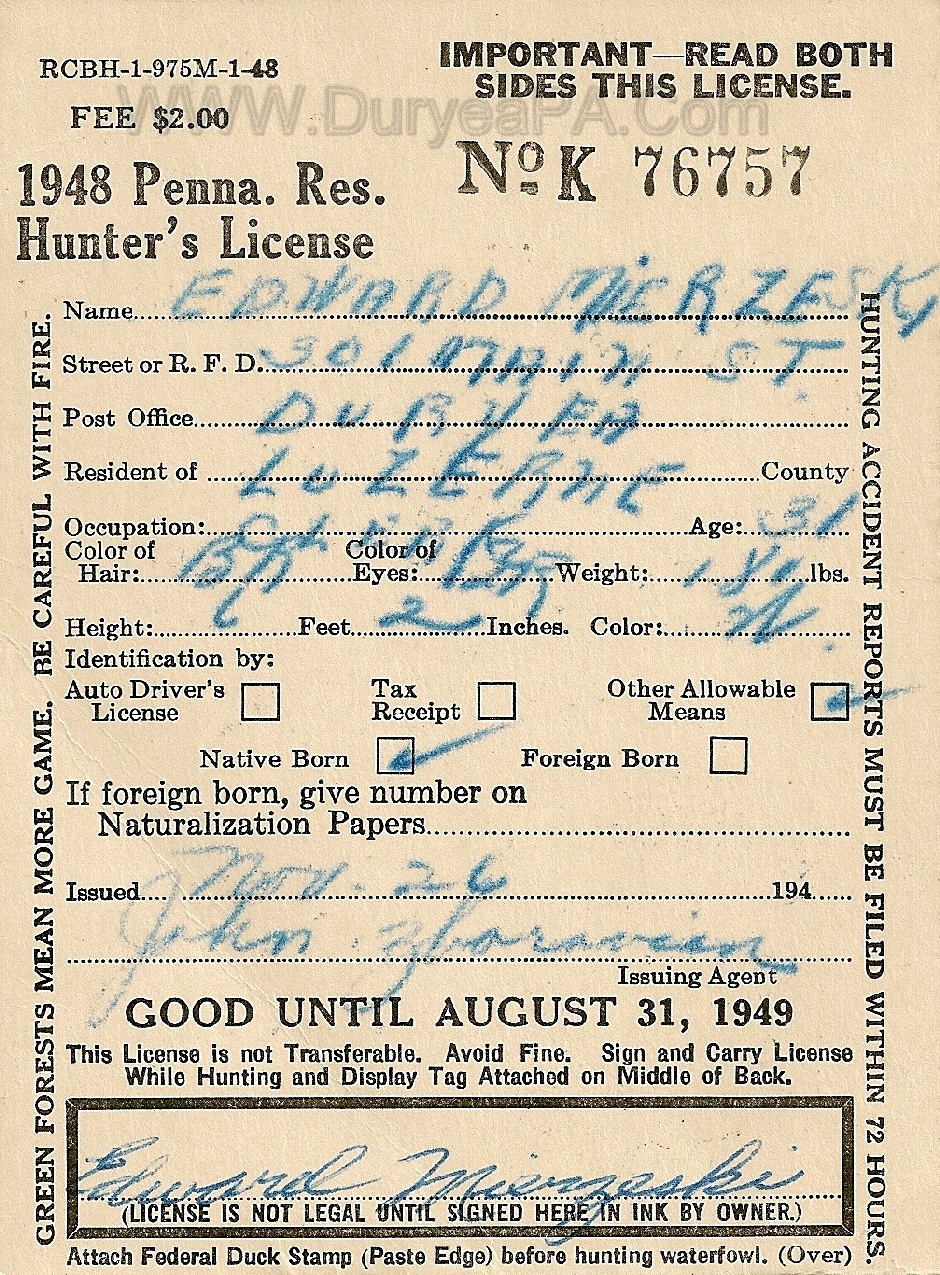 RCBH-1-975M-1-48
IMPORTANT—READ BOTH
SIDES THIS LICENSE.
WWW.DuryeaPA.Com
FEE $2.00
No K 76757
1948 Penna. Res.
Hunter's License
Name EDWARD MIERZESKI
Street or R. F. D. 301 MAIN ST
Post Office DURYEA
Resident of LUZERNE County
Occupation: Age: 31
Color of Hair: BR Color of Eyes: Weight: lbs.
Height: 6 Feet 2 Inches. Color: W.
Identification by:
Auto Driver's License Tax Receipt Other Allowable Means
Native Born Foreign Born
If foreign born, give number on
Naturalization Papers
Issued Nov. 26 194
John
Issuing Agent
GOOD UNTIL AUGUST 31, 1949
This License is not Transferable. Avoid Fine. Sign and Carry License
While Hunting and Display Tag Attached on Middle of Back.
Edward Mierzeski
(LICENSE IS NOT LEGAL UNTIL SIGNED HERE IN INK BY OWNER.)
Attach Federal Duck Stamp (Paste Edge) before hunting waterfowl. (Over)
GREEN FORESTS MEAN MORE GAME. BE CAREFUL WITH FIRE.
HUNTING ACCIDENT REPORTS MUST BE FILED WITHIN 72 HOURS.